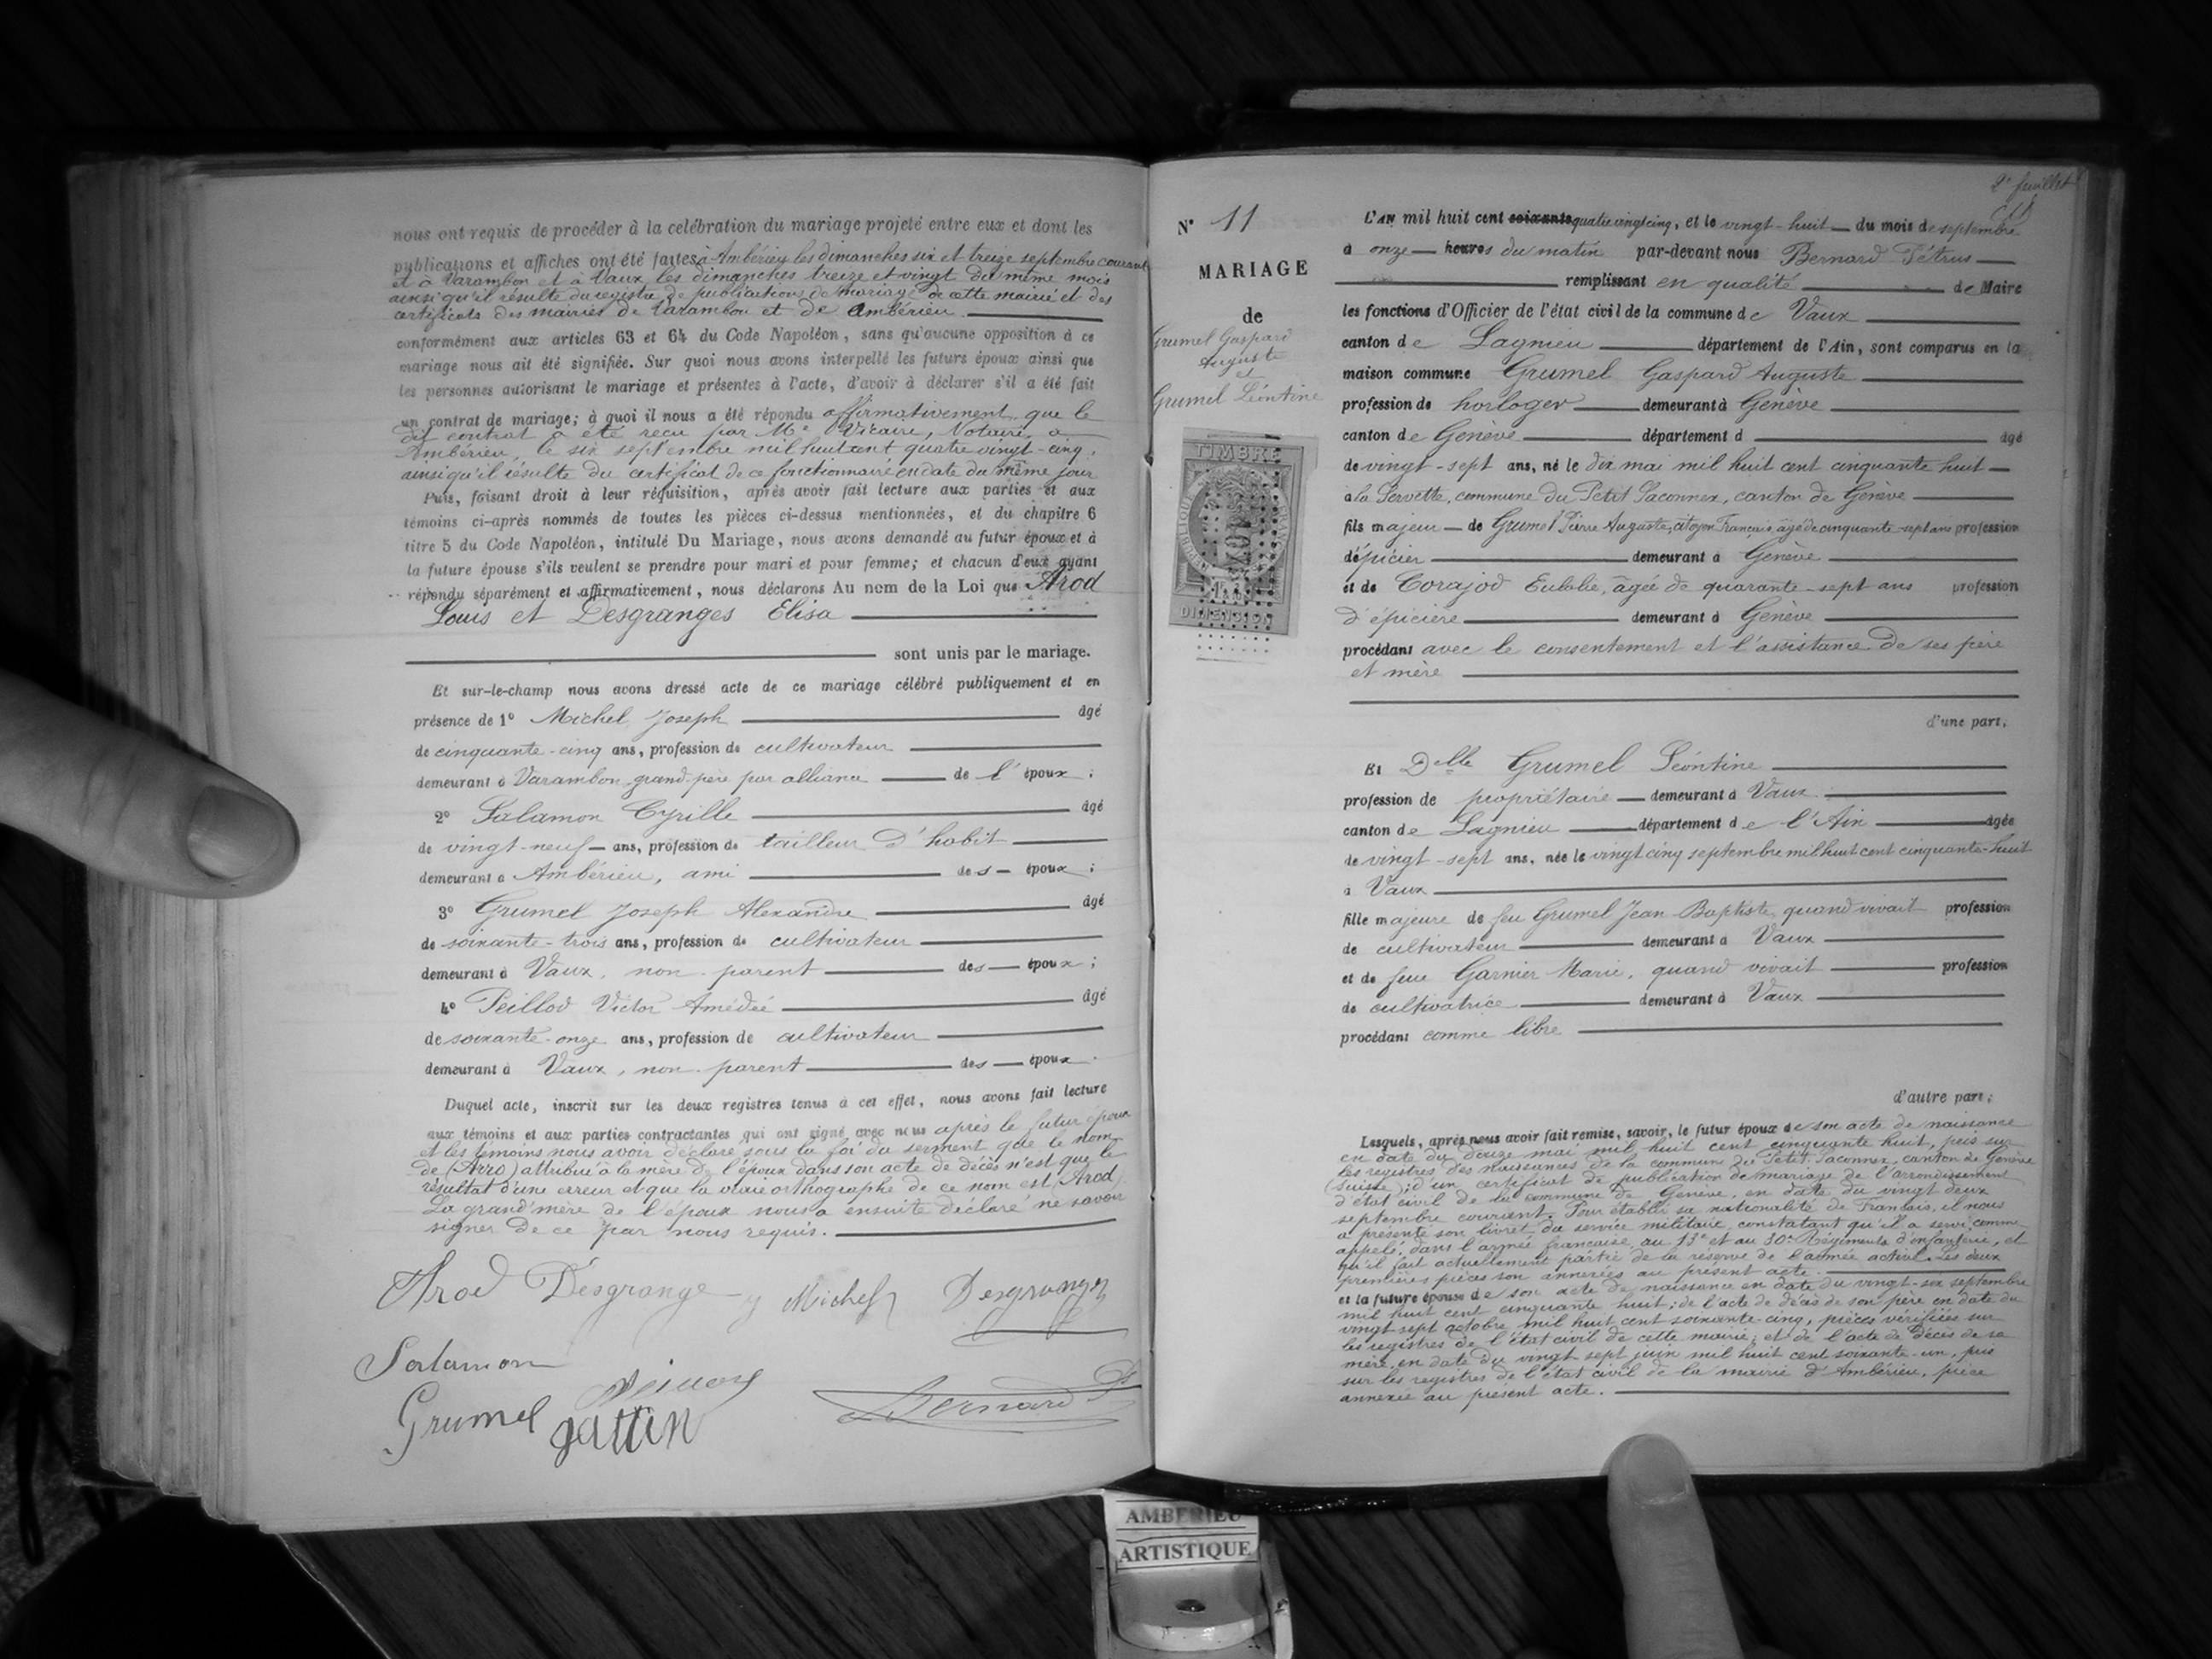 nous ont requis de procéder à la celébration du mariage projeté entre eux et dont les
publications et affiches ont été faites à Ambérieu les dimanches six et treize septembre courant
et à Varambon et à Vaux les dimanches treize et vingt du même mois
ainsi qu'il résulte du registre de publications de mariage de cette mairie et des
certificats des mairies de Varambon et de Ambérieu.
conformément aux articles 63 et 64 du Code Napoléon, sans qu'aucune opposition à ce
mariage nous ait été signifiée. Sur quoi nous avons interpellé les futurs époux ainsi que
les personnes autorisant le mariage et présentes à l'acte, d'avoir à déclarer s'il a été fait
un contrat de mariage; à quoi il nous a été répondu affirmativement, que le
dit contrat a été reçu par Me Vicaire, Notaire, à
Ambérieu, le six septembre mil huit cent quatre vingt-cinq,
ainsi qu'il résulte du certificat de ce fonctionnaire en date du même jour
Puis, faisant droit à leur réquisition, après avoir fait lecture aux parties et aux
témoins ci-après nommés de toutes les pièces ci-dessus mentionnées, et du chapitre 6
titre 5 du Code Napoléon, intitulé Du Mariage, nous avons demandé au futur époux et à
la future épouse s'ils veulent se prendre pour mari et pour femme; et chacun d'eux ayant
répondu séparément et affirmativement, nous déclarons Au nom de la Loi que Arod
Louis et Desgranges Elisa
sont unis par le mariage.
Et sur-le-champ nous avons dressé acte de ce mariage célébré publiquement et en
présence de 1° Michel Joseph âgé
de cinquante-cinq ans, profession de cultivateur
demeurant à Varambon grand-père par alliance de l' époux;
2° Salamon Cyrille âgé
de vingt-neuf ans, profession de tailleur d'habit
demeurant à Ambérieu, ami des époux;
3° Grumel Joseph Alexandre âgé
de soixante-trois ans, profession de cultivateur
demeurant à Vaux, non parent des époux;
4° Peillod Victor Amédée âgé
de soixante-onze ans, profession de cultivateur
demeurant à Vaux, non parent des époux.
Duquel acte, inscrit sur les deux registres tenus à cet effet, nous avons fait lecture
aux témoins et aux parties contractantes qui ont signé avec nous après le futur époux
et les témoins nous avoir déclaré sous la foi du serment que le nom
de (Arro) attribué à la mère de l'époux dans son acte de décès n'est que le
résultat d'une erreur et que la vraie orthographe de ce nom est (Arod)
La grand'mère de l'époux nous a ensuite déclaré ne savoir
signer de ce par nous requis.
Arod Desgranges Michel Desgranges
Salamon
Grumel gattin Bernard
2e feuillet
N° 11
MARIAGE
de
Grumel Gaspard
Auguste
et
Grumel Léontine
TIMBRE
DIMENSION
L'AN mil huit cent soixante quatre vingt cinq, et le vingt-huit du mois de septembre
à onze heures du matin par-devant nous Bernard Pétrus
remplissant en qualité de Maire
les fonctions d'Officier de l'état civil de la commune de Vaux
canton de Lagnieu département de l'Ain, sont comparus en la
maison commune Grumel Gaspard Auguste
profession de horloger demeurant à Genève
canton de Genève département d âgé
de vingt-sept ans, né le dix mai mil huit cent cinquante huit
à la Servette, commune du Petit Saconnex, canton de Genève
fils majeur de Grumel Pierre Auguste, citoyen Français, âgé de cinquante-sept ans profession
d'épicier demeurant à Genève
et de Corajod Eulalie, âgée de quarante-sept ans profession
d'épicière demeurant à Genève
procédant avec le consentement et l'assistance de ses père
et mère
d'une part,
Et Delle Grumel Léontine
profession de propriétaire demeurant à Vaux
canton de Lagnieu département de l'Ain âgée
de vingt-sept ans, née le vingt cinq septembre mil huit cent cinquante-huit
à Vaux
fille majeure de feu Grumel Jean Baptiste, quand vivait profession
de cultivateur demeurant à Vaux
et de feue Garnier Marie, quand vivait profession
de cultivatrice demeurant à Vaux
procédant comme libre
d'autre part;
Lesquels, après nous avoir fait remise, savoir, le futur époux de son acte de naissance
en date du douze mai mil huit cent cinquante huit, pris sur
les registres des naissances de la commune du Petit Saconnex, canton de Genève
(Suisse); d'un certificat de publication de mariage de l'arrondissement
d'état civil de la commune de Genève, en date du vingt deux
septembre courant. Pour établir sa nationalité de Français, il nous
a présenté son livret du service militaire, constatant qu'il a servi, comme
appelé, dans l'armée française, au 13e et au 30e Régiments d'infanterie, et
qu'il fait actuellement partie de la réserve de l'armée active. Les deux
premières pièces son annexées au présent acte.
et la future épouse de son acte de naissance en date du vingt-six septembre
mil huit cent cinquante huit; de l'acte de décès de son père en date du
vingt sept octobre mil huit cent soixante-cinq, pièces vérifiées sur
les registres de l'état civil de cette mairie; et de l'acte de décès de sa
mère, en date du vingt sept juin mil huit cent soixante-un, pris
sur les registres de l'état civil de la mairie d'Ambérieu, pièce
annexée au présent acte.
AMBERIEU
ARTISTIQUE